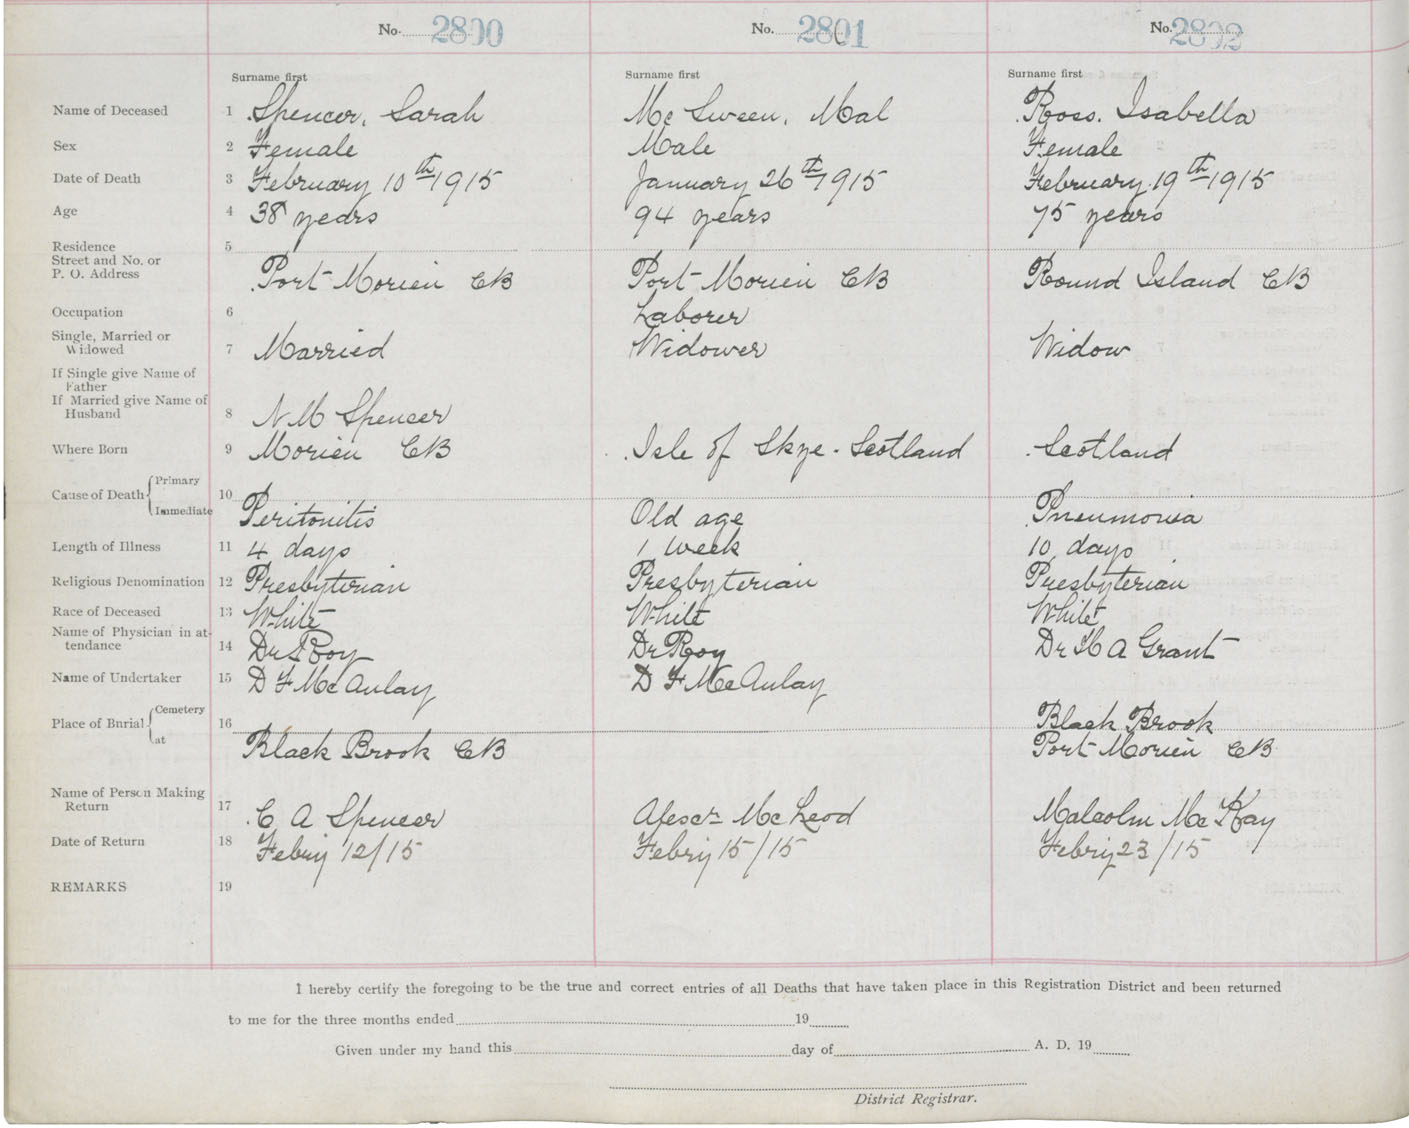 No. 2800 No. 2801 No. 2802
Surname first Surname first Surname first
Name of Deceased 1 Spencer, Sarah Mc Sween, Mal Ross. Isabella
Sex 2 Female Male Female
Date of Death 3 February 10th 1915 January 26th 1915 February 19th 1915
Age 4 38 years 94 years 75 years
Residence 5
Street and No. or
P. O. Address Port Morien CB Port Morien CB Round Island CB
Occupation 6 Laborer
Single, Married or
Widowed 7 Married Widower Widow
If Single give Name of
Father
If Married give Name of
Husband 8 N M Spencer
Where Born 9 Morien CB Isle of Skye - Scotland Scotland
Cause of Death Primary 10
Immediate Peritonitis Old age Pneumonia
Length of Illness 11 4 days 1 week 10 days
Religious Denomination 12 Presbyterian Presbyterian Presbyterian
Race of Deceased 13 White White White
Name of Physician in at-
tendance 14 Dr Roy Dr Roy Dr H A Grant
Name of Undertaker 15 D F McAulay D F McAulay
Place of Burial Cemetery 16 Black Brook
at Black Brook CB Port Morien CB
Name of Person Making
Return 17 C A Spencer Mc Leod Malcolm Mc Kay
Date of Return 18 Febry 12/15 Febry 15/15 Febry 23/15
REMARKS 19
I hereby certify the foregoing to be the true and correct entries of all Deaths that have taken place in this Registration District and been returned
to me for the three months ended 19
Given under my hand this day of A. D. 19
District Registrar.